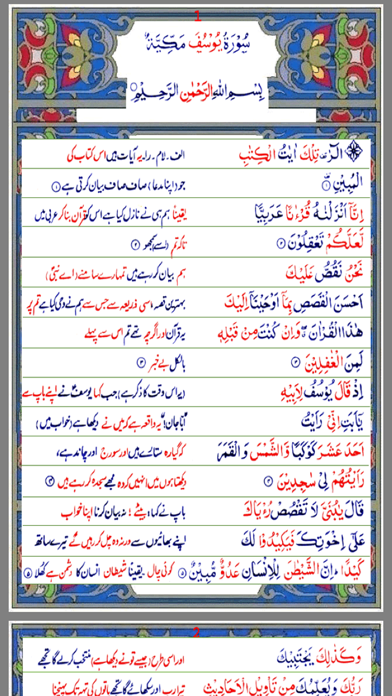 1
سُوْرَةُ يُوْسُفَ مَكِّيَّةٌ
بِسْمِ اللهِ الرَّحْمٰنِ الرَّحِيْمِ
الٓرٰ تِلْكَ اٰيٰتُ الْكِتٰبِ الف۔لام۔را۔یہ آیات ہیں اس کتاب کی
الْمُبِيْنِ ۝۱ جو (اپنا مدعا) صاف صاف بیان کرتی ہے ۝۱
اِنَّآ اَنْزَلْنٰهُ قُرْءٰنًا عَرَبِيًّا یقیناً ہم ہی نے نازل کیا ہے اس کو قرآن بنا کر عربی میں
لَّعَلَّكُمْ تَعْقِلُوْنَ ۝۲ تاکہ تم (اسے) سمجھو ۝۲
نَحْنُ نَقُصُّ عَلَيْكَ ہم بیان کر رہے ہیں تمہارے سامنے (اے نبیؐ)
اَحْسَنَ الْقَصَصِ بِمَآ اَوْحَيْنَآ اِلَيْكَ بہترین قصہ اسی ذریعہ سے جس سے ہم نے وحی کیا ہے تم پر
هٰذَا الْقُرْاٰنَ وَاِنْ كُنْتَ مِنْ قَبْلِهٖ یہ قرآن اور اگرچہ تھے تم اس سے پہلے
لَمِنَ الْغٰفِلِيْنَ ۝۳ بالکل بے خبر ۝۳
اِذْ قَالَ يُوْسُفُ لِاَبِيْهِ (یہ اس وقت کا ذکر ہے) جب کہا یوسفؑ نے اپنے باپ سے
يٰٓاَبَتِ اِنِّيْ رَاَيْتُ اباجان! یہ واقعہ ہے کہ میں نے دیکھا ہے (خواب میں)
اَحَدَ عَشَرَ كَوْكَبًا وَّالشَّمْسَ وَالْقَمَرَ کہ گیارہ ستارے ہیں اور سورج اور چاند ہے،
رَاَيْتُهُمْ لِيْ سٰجِدِيْنَ ۝۴ دیکھتا ہوں میں انہیں کہ وہ مجھے سجدہ کر رہے ہیں ۝۴
قَالَ يٰبُنَيَّ لَا تَقْصُصْ رُءْيَاكَ باپ نے کہا، بیٹے! نہ بیان کرنا اپنا خواب
عَلٰٓى اِخْوَتِكَ فَيَكِيْدُوْا لَكَ اپنے بھائیوں سے ورنہ وہ چل کر رہیں گے تیرے ساتھ
كَيْدًا اِنَّ الشَّيْطٰنَ لِلْاِنْسَانِ عَدُوٌّ مُّبِيْنٌ ۝۵ کوئی چال۔ یقیناً شیطان انسان کا دشمن ہے کھلا ۝۵
2
وَكَذٰلِكَ يَجْتَبِيْكَ اور اسی طرح (جیسے تو نے دیکھا ہے) منتخب کرے گا تجھے
رَبُّكَ وَيُعَلِّمُكَ مِنْ تَاْوِيْلِ الْاَحَادِيْثِ تیرا رب اور سکھائے گا تجھے باتوں کی تہ تک پہنچنا